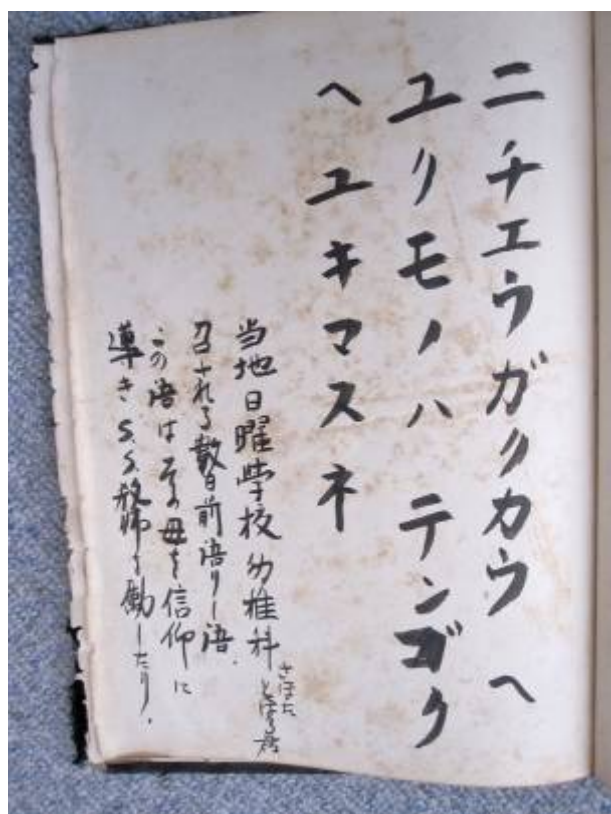 ニチエウガクカウヘ
ユクモノハ テンゴク
ヘ ユキマスネ
当地日曜学校幼稚科
召される数日前語りし語、
この語はその母を信仰に
導き S.S.教師